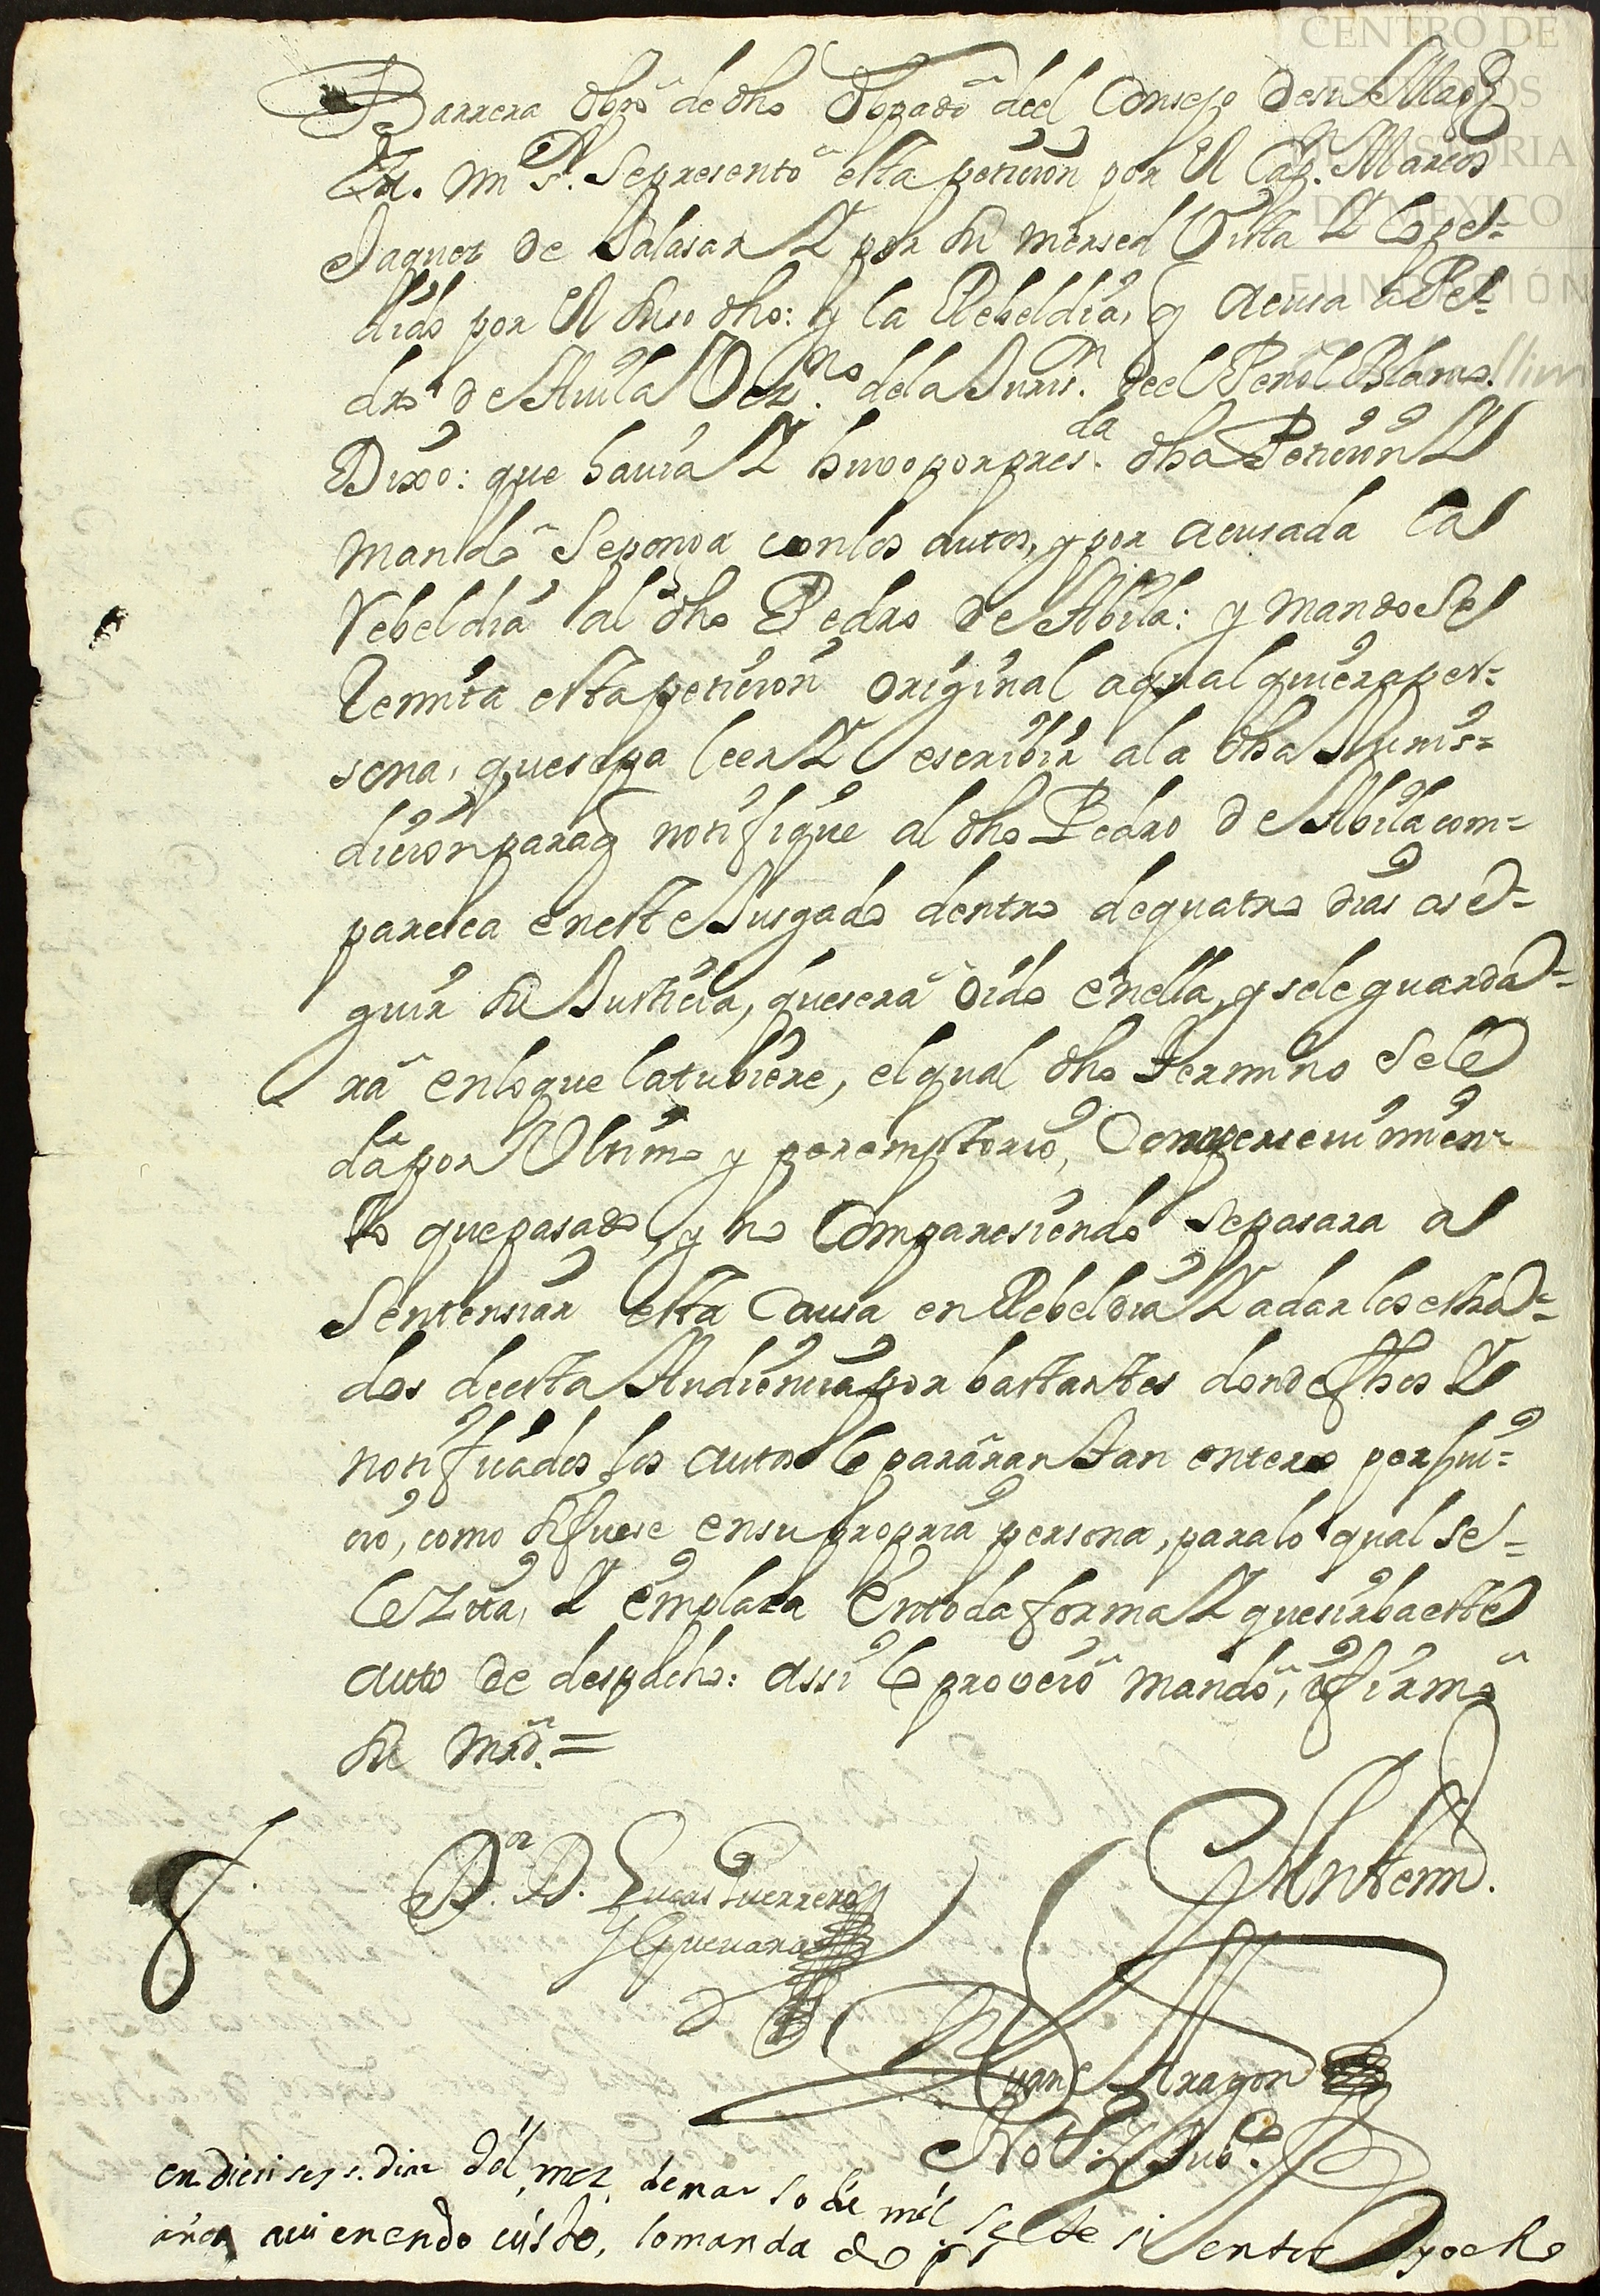 Barrera obpõ de dho obpado del Consejo de su Magd
En. mi s. se presentó esta peticion por el Cap. Marcos
Jaques de Salasar Y por su mersed vista Y lo pe-
dido por el suso dho: y la Rebeldia, q acusa a Pe-
dro de Auila Vezno. de la Juris.n del Peñol Blanco.
Dixo: que hauia Y huvo por presda. dha Peticion Y
mandó se ponga con los autos, y por acusada la
rebeldia al dho Pedro de Abila: y mando Se
remita esta peticion original a qualquiera per-
sona, que sepa leer Y escribir a la dha Juris-
dicion para q notifique al dho Pedro de Abila com-
paresca en este Jusgado dentro de quatro dias a se-
guir su Justicia, que será oido en ella, y se le guarda-
rá en lo que la tubiere, el qual dho termino se le
da por Ultimo y peremptorio, Con apersevimien-
to que pasado, y no Comparesiendo se pasara a
Sentensiar esta Causa en Rebeldia Y a dar los estra-
dos de esta Audiencia por bastantes donde fhos Y
notificados los autos le pararan tan entero perjui-
cio, como si fuese en su propria persona, para lo qual se-
le zita, Y emplaza en toda forma Y que sirba este
auto de despacho: assi lo proveió mandó, y firmó
su mrd.=
Dor. D. Lucas Guerrero
y Gueuara
Ante mi.
Juan de Aragon
Not. Pubco.
en dieci seys. dias del mez de marso de mil sete sientos y ocho
años auiendo uisto, lo mandado p